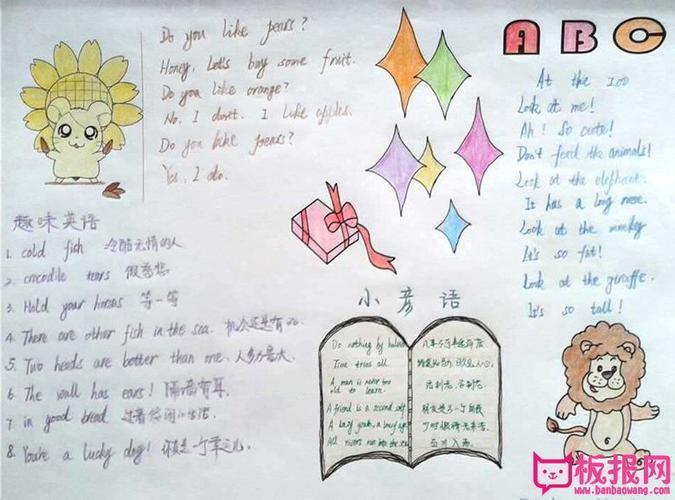 Do you like pears?
Honey, Let's buy some fruit.
Do you like orange?
No, I don't. I like apples.
Do you like pears?
Yes, I do.
趣味英语
1. cold fish 冷酷无情的人
2. crocodile tears 假慈悲
3. Hold your horses 等一等
4. There are other fish in the sea. 机会还是有的.
5. Two heads are better than one. 人多力量大.
6. The wall has ears! 隔墙有耳.
7. in good bread 过着悠闲的生活
8. You're a lucky dog! 你真是一个幸运儿.
小彦语
Do nothing by halves
Time tries all
A man is never too
old to learn.
A friend is a second self
A lazy youth, a lousy age
All rivers run into the sea
凡事不可半途而废
路遥知马力,日久见人心.
活到老,学到老.
朋友是另一个自我
少时懒惰老来苦.
百川入海.
ABC
At the zoo
Look at me!
Ah! So cute!
Don't feed the animals!
Look at the elephant.
It has a long nose.
Look at the monkey
It's so fat!
Look at the giraffe.
It's so tall!
板报网
www.banbaowang.com